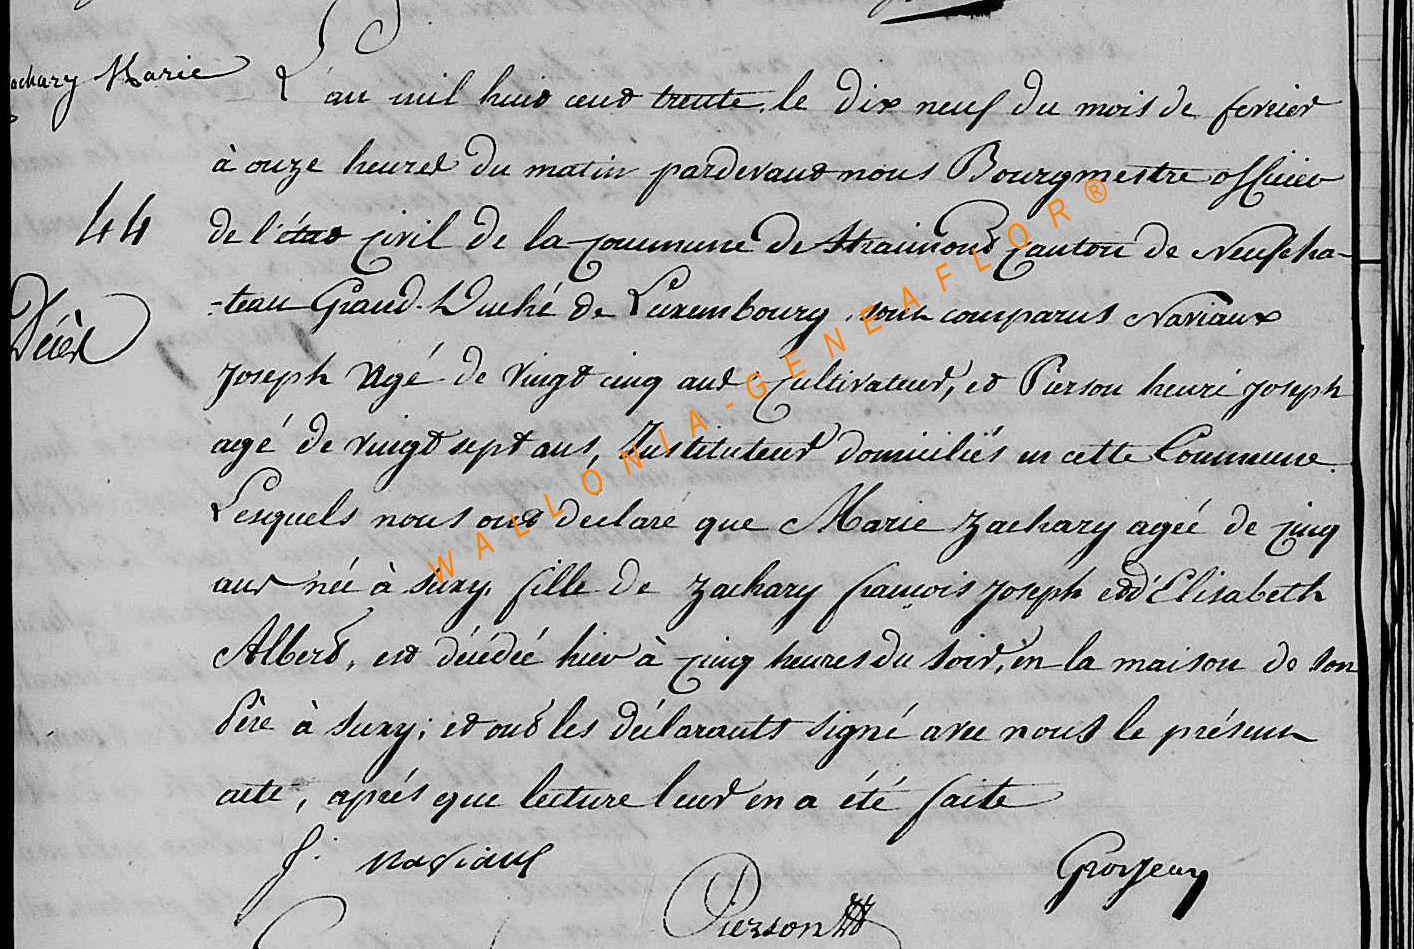 achary Marie
44
Décès
L'an mil huit cent trente, le dix neuf du mois de fevrier
à onze heures du matin pardevant nous Bourgmestre officier
de l'état civil de la commune de Straimont canton de Neufcha-
-teau Grand-Duché de Luxembourg, sont comparus Naviaux
Joseph Agé de vingt cinq ans, cultivateur, et Pierson henri joseph
agé de vingt sept ans, Instituteur domiciliés en cette Commune.
Lesquels nous ont declaré que Marie Zachary agée de cinq
ans née à Suxy, fille de Zachary françois Joseph et d'Elisabeth
Albert, est décédée hier à cinq heures du soir, en la maison de son
Père à Suxy; et ont les déclarants signé avec nous le présent
acte, après que lecture leur en a été faite
J. naviaux
Pierson HJ
Grosjean
WALLONIA-GENEAFLOR®